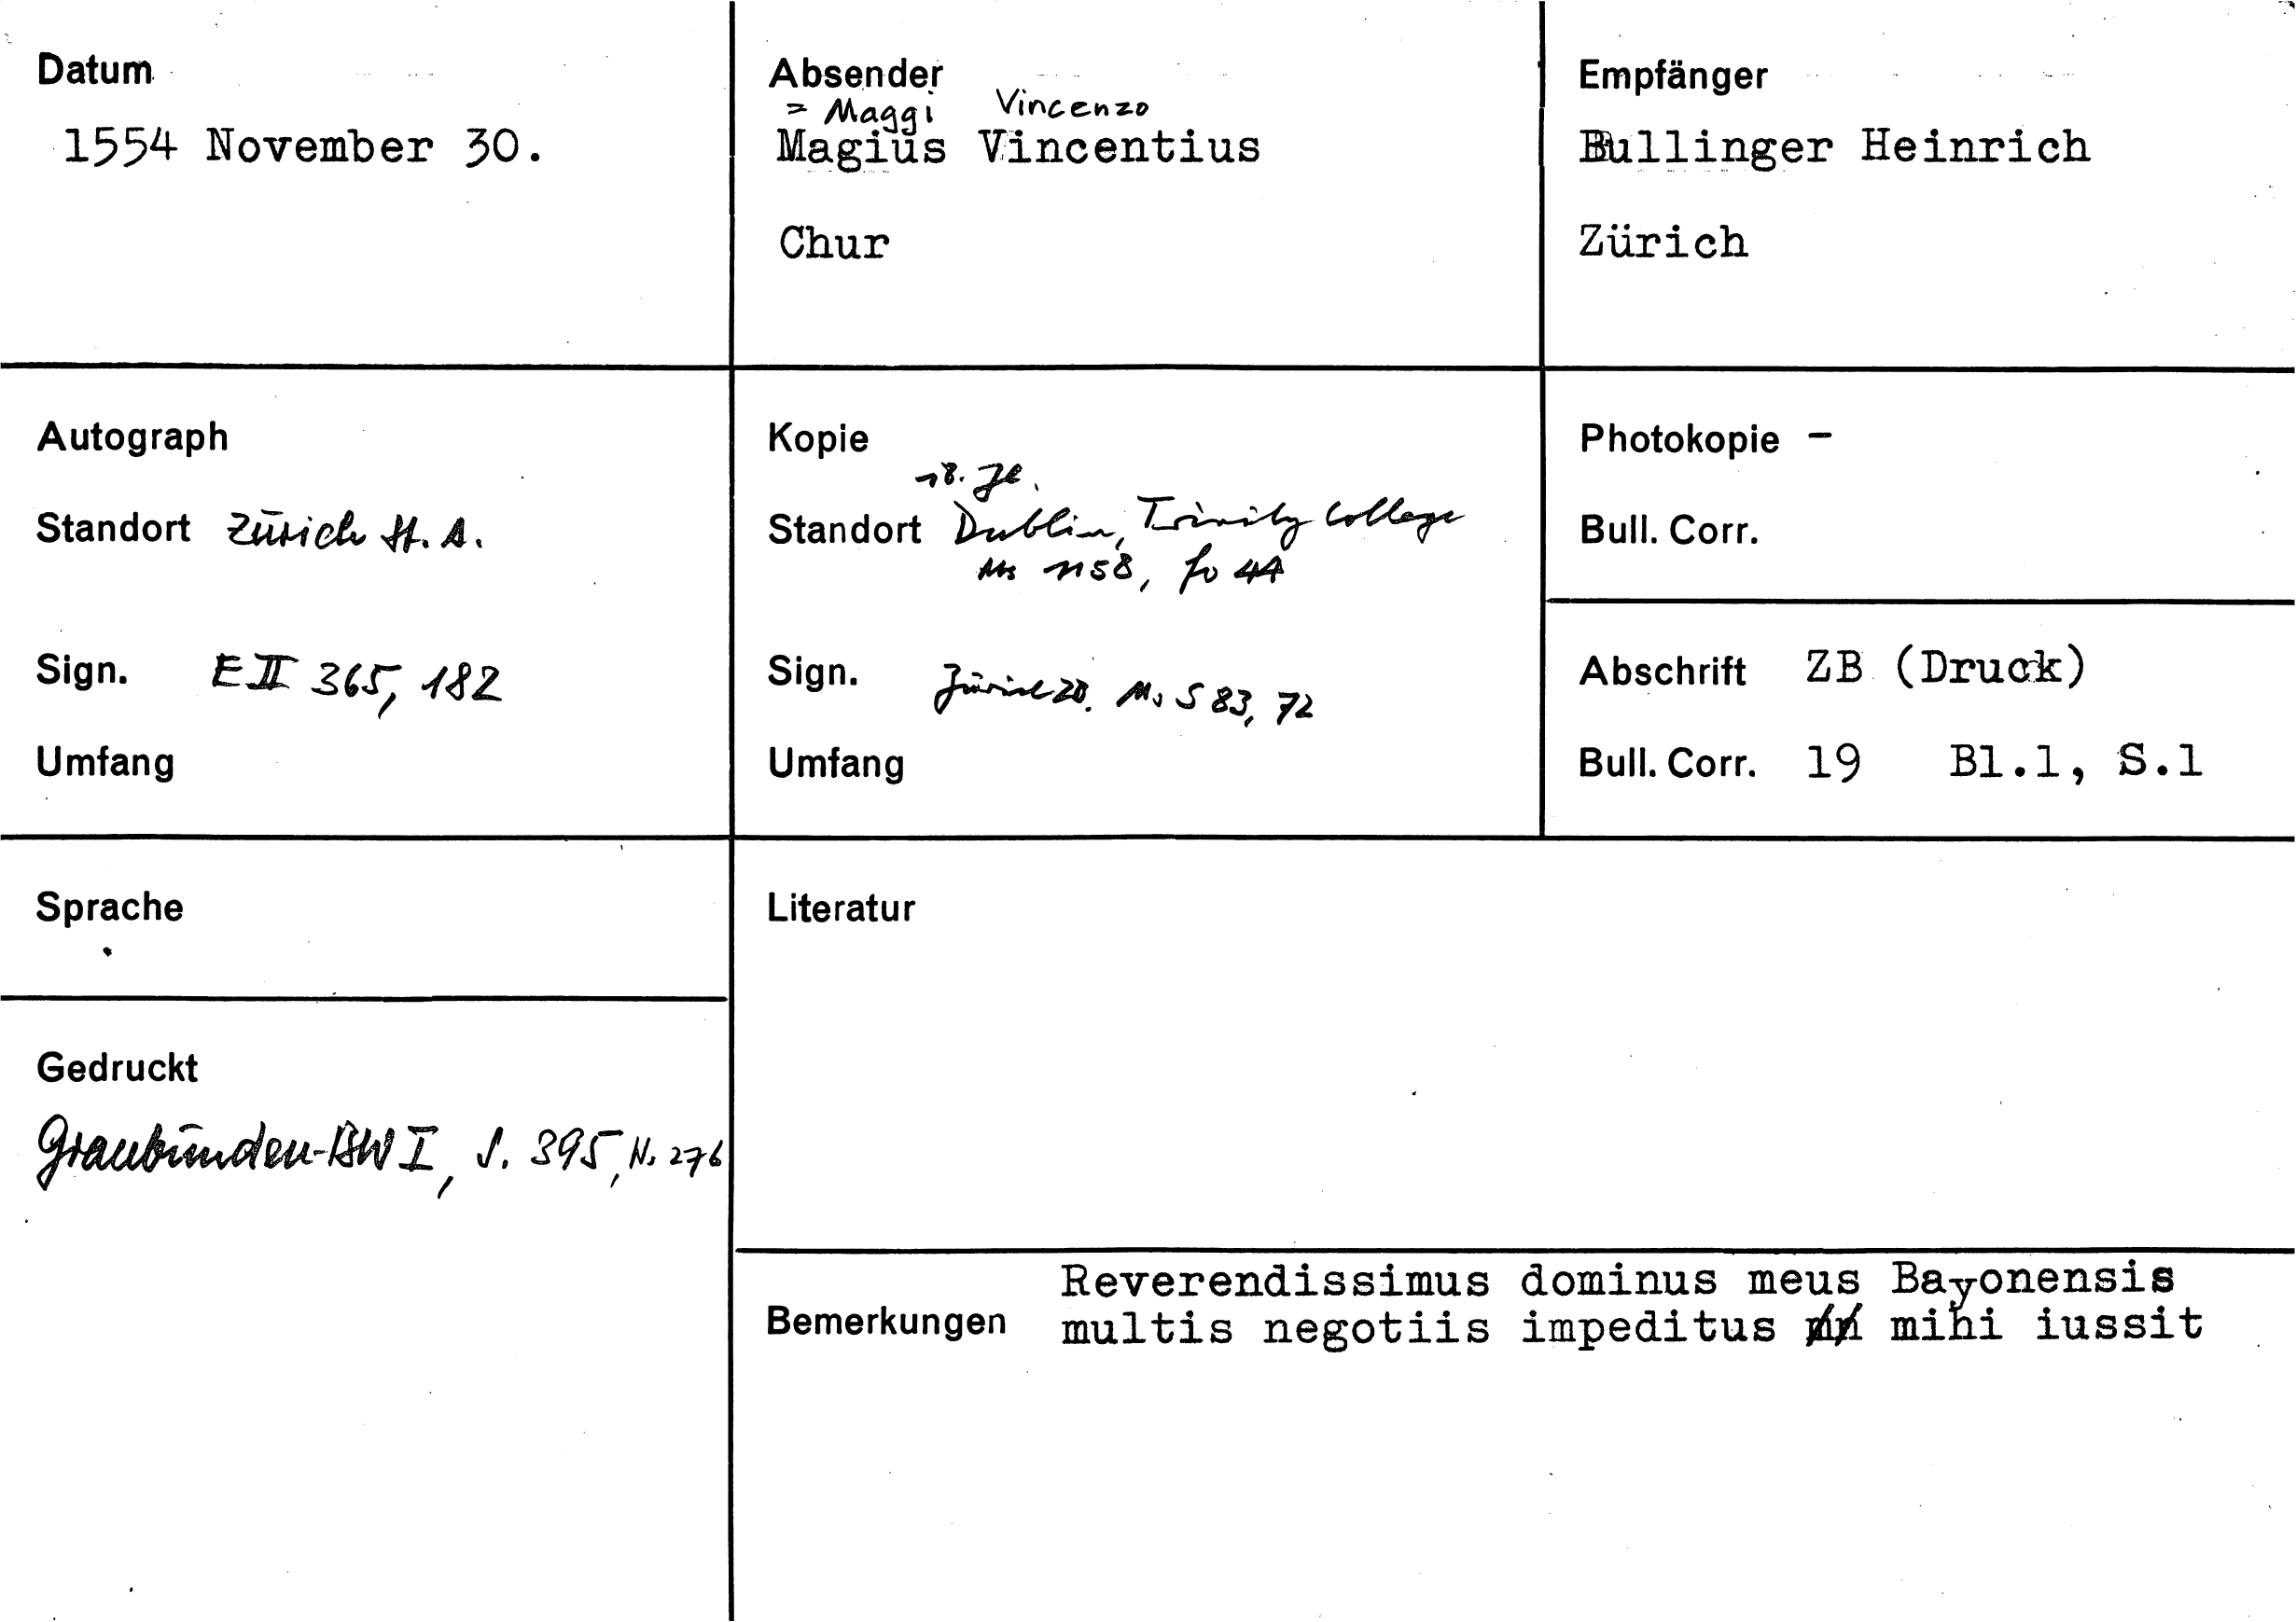 Datum
1554 November 30.
Absender
= Maggi Vincenzo
Magius Vincentius
Chur
Empfänger
Bullinger Heinrich
Zürich
Autograph
Standort Zürich St. A.
Sign. E II 365, 182
Umfang
Kopie
18. Jh.
Standort Dublin, Trinity College
Ms 1158, fo 44
Sign. Zürich ZB. Ms S 83, 72
Umfang
Photokopie –
Bull. Corr.
Abschrift ZB (Druck)
Bull. Corr. 19 Bl.1, S.1
Sprache
Gedruckt
Graubünden-BW I, S. 395, N. 276
Literatur
Bemerkungen
Reverendissimus dominus meus Bayonensis
multis negotiis impeditus mihi iussit